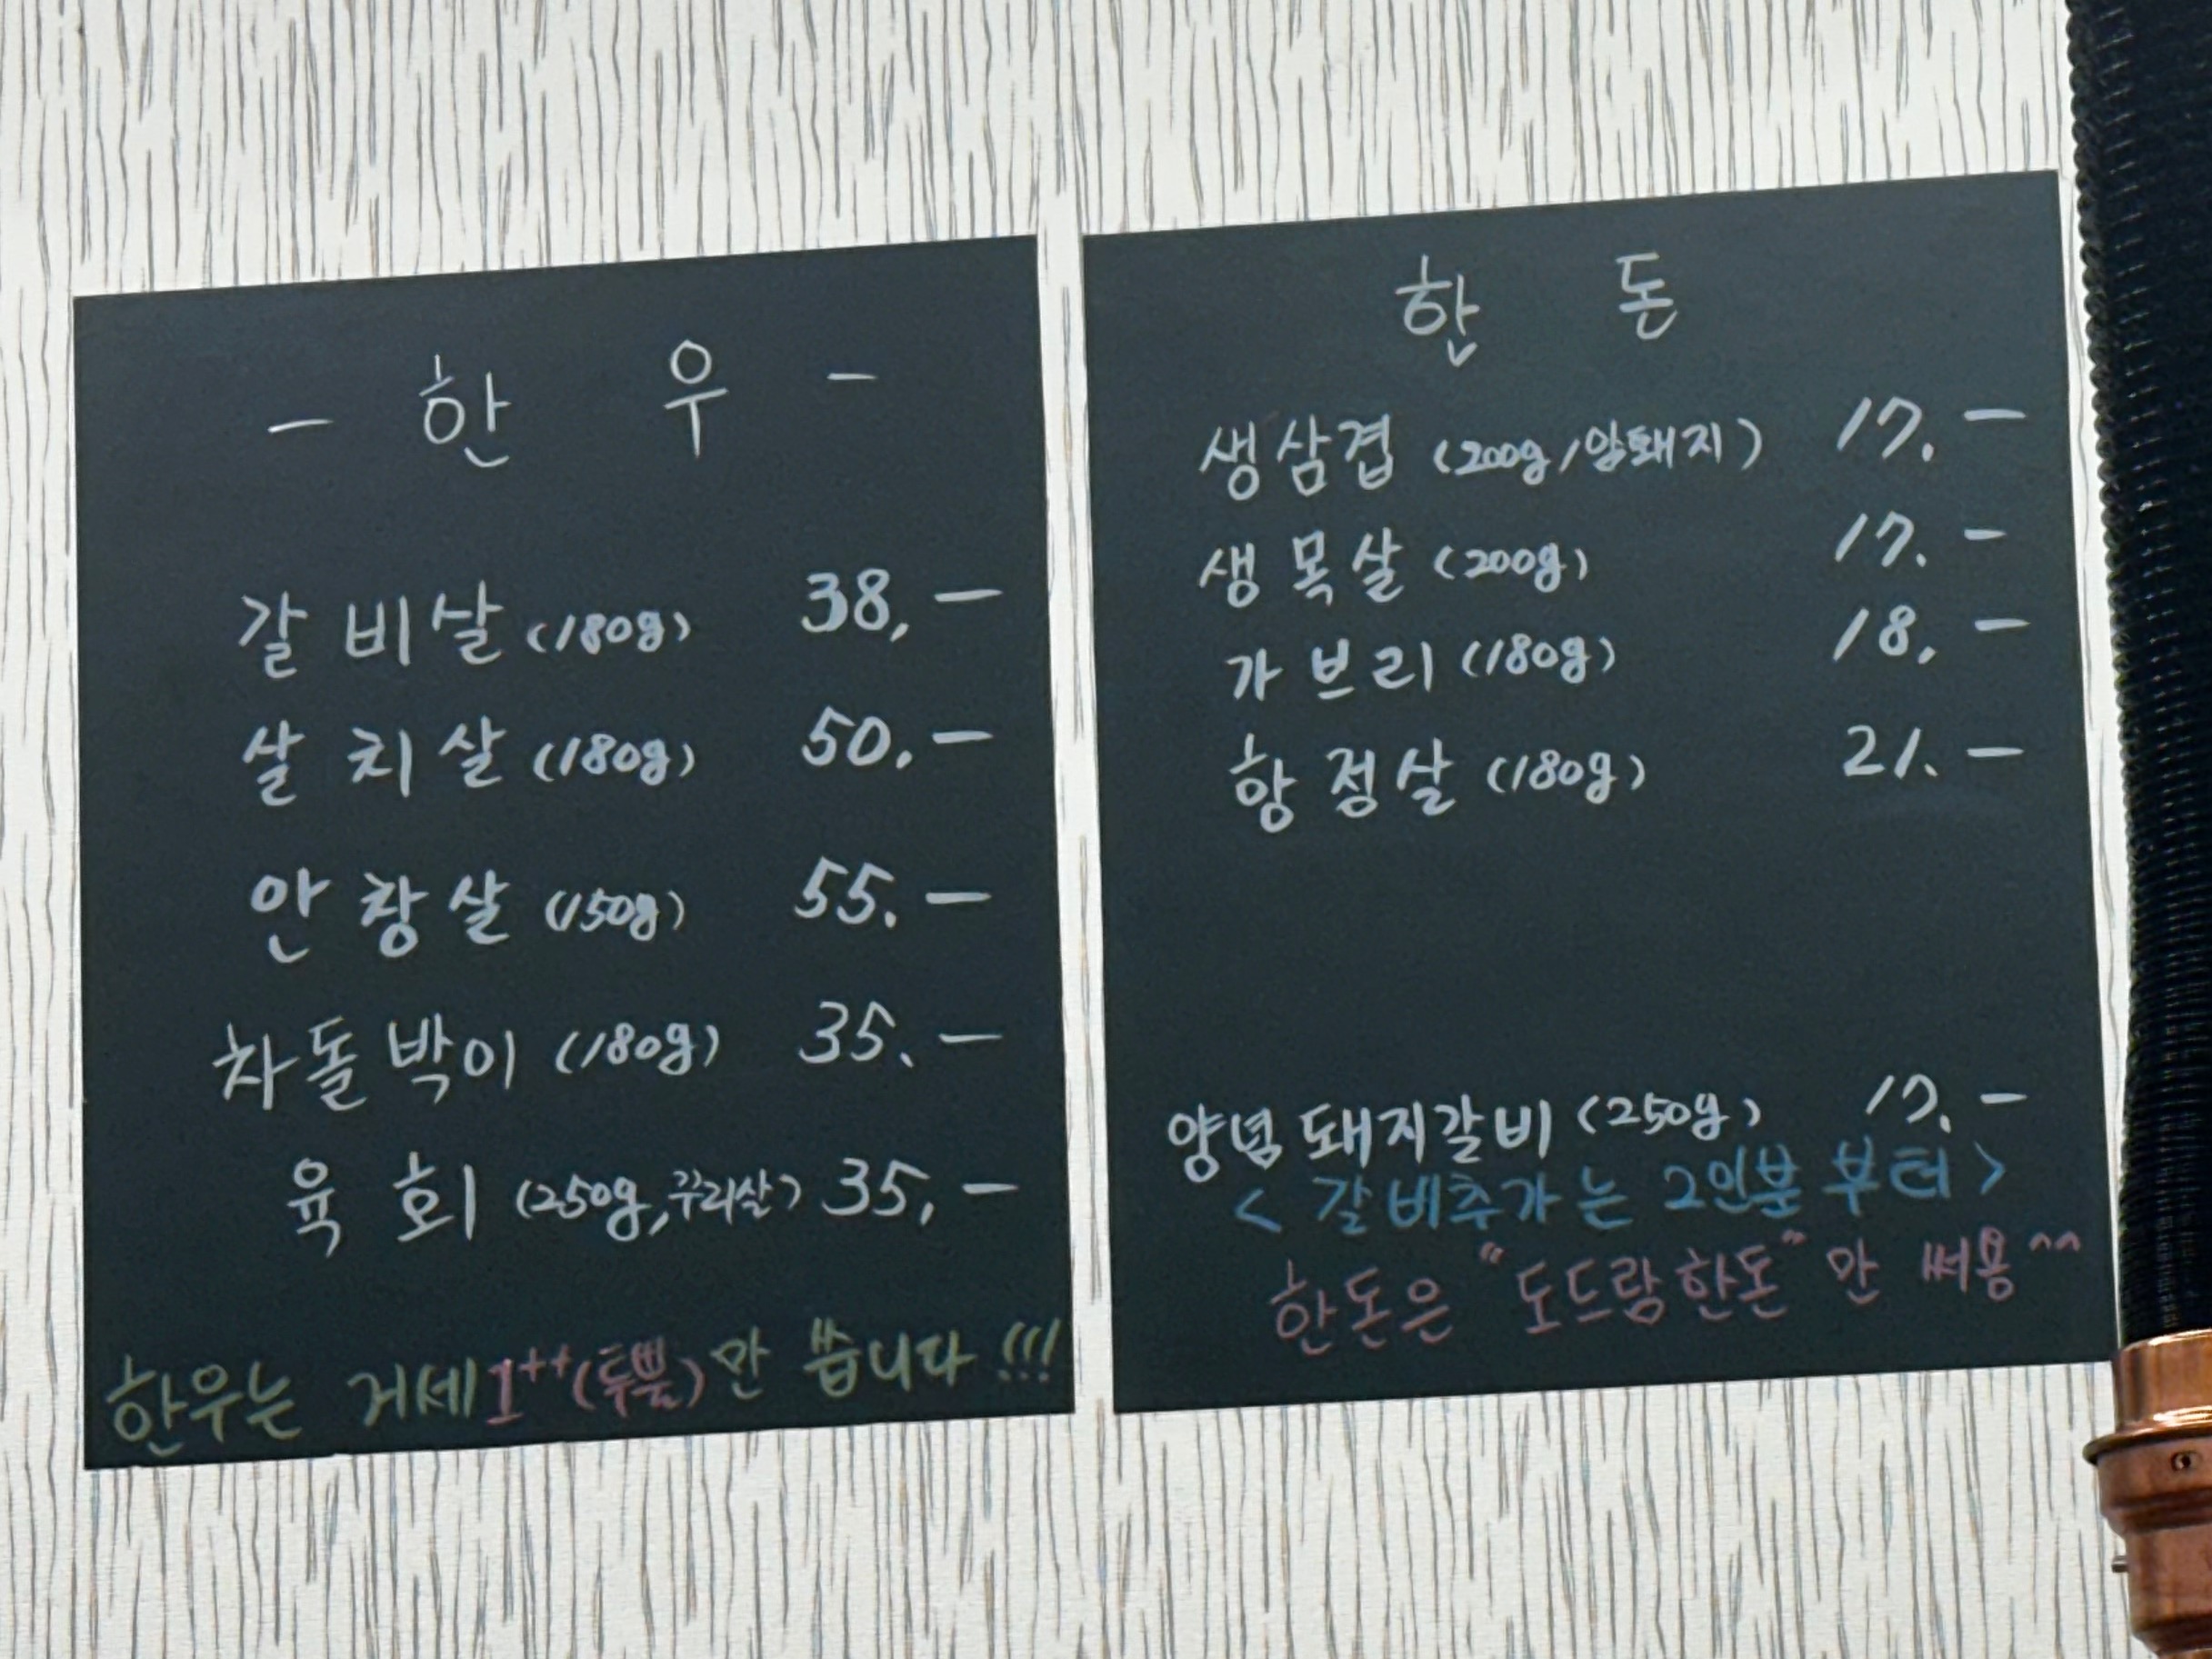 - 한 우 -
갈비살 (180g) 38,-
살치살 (180g) 50.-
안창살 (150g) 55.-
차돌박이 (180g) 35.-
육회 (250g, 꾸리살) 35,-
한우는 거세 1++(투뿔)만 씁니다 !!!
한 돈
생삼겹 (200g/암퇘지) 17.-
생목살 (200g) 17.-
가브리 (180g) 18,-
항정살 (180g) 21.-
양념돼지갈비 (250g) 17.-
< 갈비추가는 2인분 부터 >
한돈은 "도드람한돈" 만 써용^^